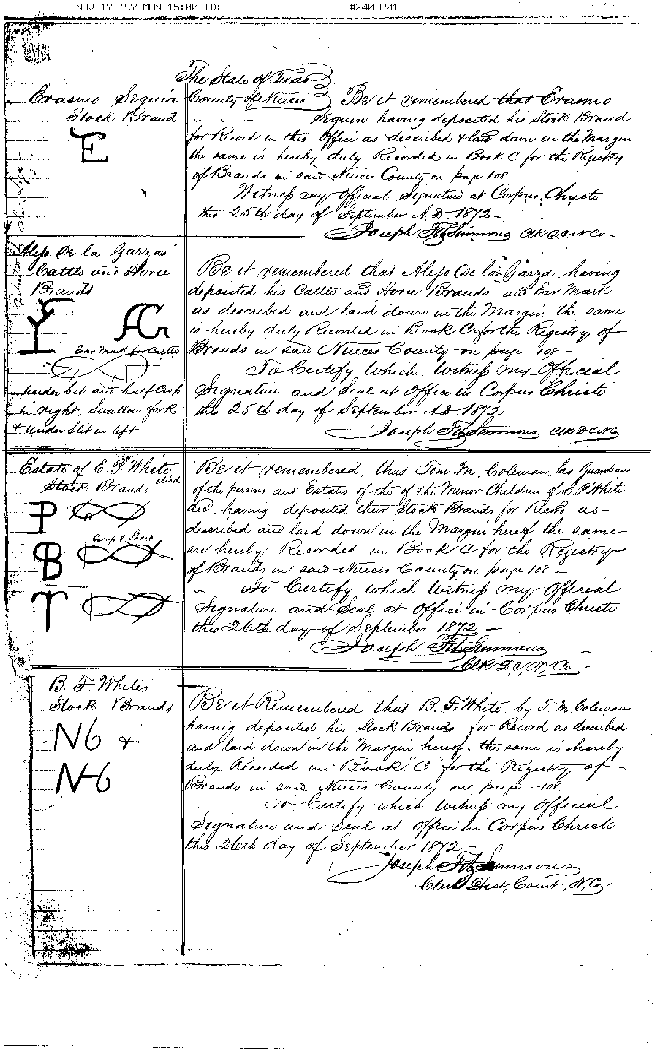 The State of Texas
County of Nueces
Erasmo Seguin
Stock Brand
E
Be it remembered that Erasmo
Seguin having deposited his Stock Brand
for Record in this Office as described & laid down in the Margin
the same is hereby duly Recorded in Book C for the Registry
of Brands in said Nueces County on page 108
Witness my Official Signature at Corpus Christi
this 25th day of September A.D. 1872
Joseph FitzSimmons Clk D.C.N.Co.
Alejo De la Garzas
Cattle and Horse
Brands
Ear Mark for Cattle
under bit and half Crop
in right, Swallow fork
& under Slit in left
Be it remembered that Alejo De la Garza having
deposited his Cattle and Horse Brands and Ear Mark
as described and laid down in the Margin the same
is hereby duly Recorded in Book C for the Registry of
Brands in said Nueces County on page 108
To Certify Which Witness my Official
Signature and Seal at Office in Corpus Christi
this 25th day of September A.D. 1872
Joseph FitzSimmons Clk D.C.N.Co
Estate of E. F. White
decd
Stock Brands
P
B
T
Be it remembered, that Tom M. Coleman, has Guardian
of the persons and Estates of the of the Minor Children of E. F. White
decd having deposited their Stock Brands for Record as
described and laid down in the Margin hereof the same
are hereby Recorded in Book C for the Registry
of Brands in said Nueces County on page 108
To Certify which Witness my Official
Signature and Seal at Office in Corpus Christi
this 26th day of September 1872
Joseph FitzSimmons
Clk D.C.N.Co.
B. F. White's
Stock Brands
N6 &
N-6
Be it Remembered that B. F. White, by T. M. Coleman
having deposited his Stock Brands for Record as described
and laid down in the Margin hereof the same is hereby
duly Recorded in Book C for the Registry of
Brands in said Nueces County on page 108
To Certify which Witness my Official
Signature and Seal at Office in Corpus Christi
this 26th day of September 1872
Joseph FitzSimmons
Clerk Dist, Court, N. Co